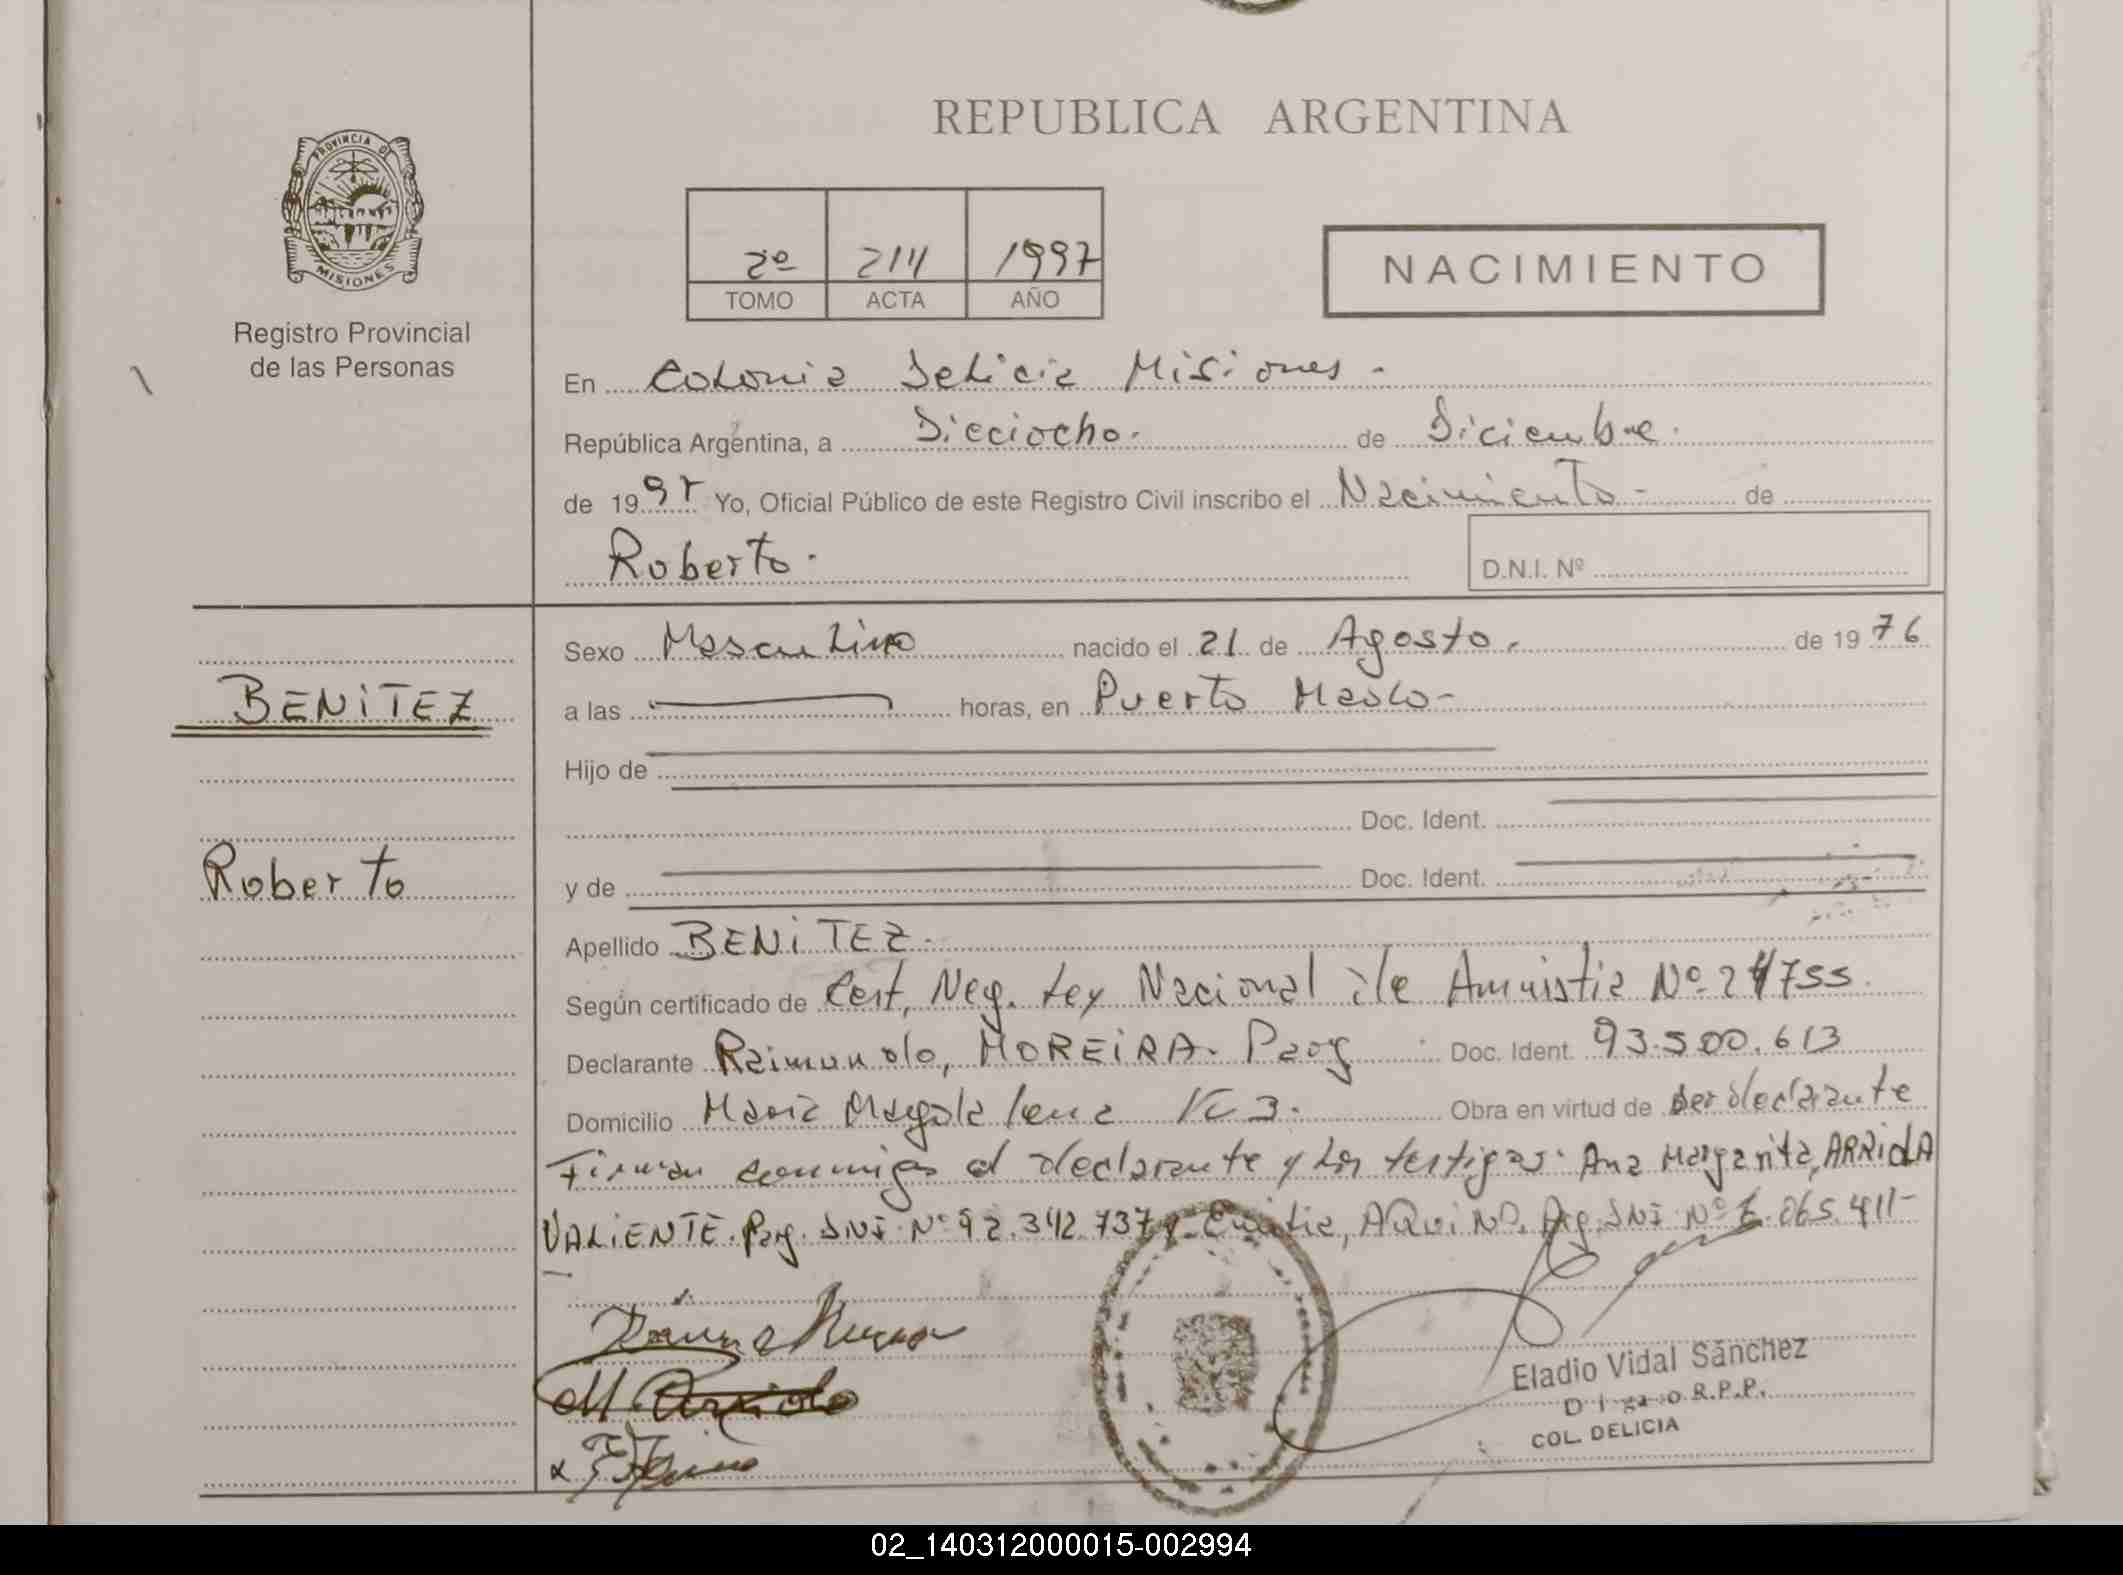 REPUBLICA ARGENTINA
PROVINCIA DE
MISIONES
Registro Provincial
de las Personas
2º 1997
TOMO ACTA AÑO
NACIMIENTO
En Colonia Delicia Misiones.
República Argentina, a Dieciocho. de Diciembre.
de 1997 Yo, Oficial Público de este Registro Civil inscribo el Nacimiento - de
Roberto.
D.N.I. Nº
BENiTEZ
Roberto
Sexo Masculino nacido el 21 de Agosto. de 1976
a las horas, en Puerto Mado-
Hijo de
Doc. Ident.
y de Doc. Ident.
Apellido BENiTEZ.
Según certificado de Cert. Neg. Ley Nacional de Amnistia Nº 24755.
Declarante Raimundo, MOREiRA. Parg Doc. Ident. 93.500.613
Domicilio Maria Magdalena Km 3. Obra en virtud de ser declarante
Firman conmigo el declarante y los testigos: Ana Margarita, ARRiOLA
VALiENTE. Parg. DNI. Nº 92.342.737 y Emitia, AQUiNO. Arg. DNI Nº 6.065.411-
Eladio Vidal Sánchez
R.P.P.
COL. DELICIA
02_140312000015-002994